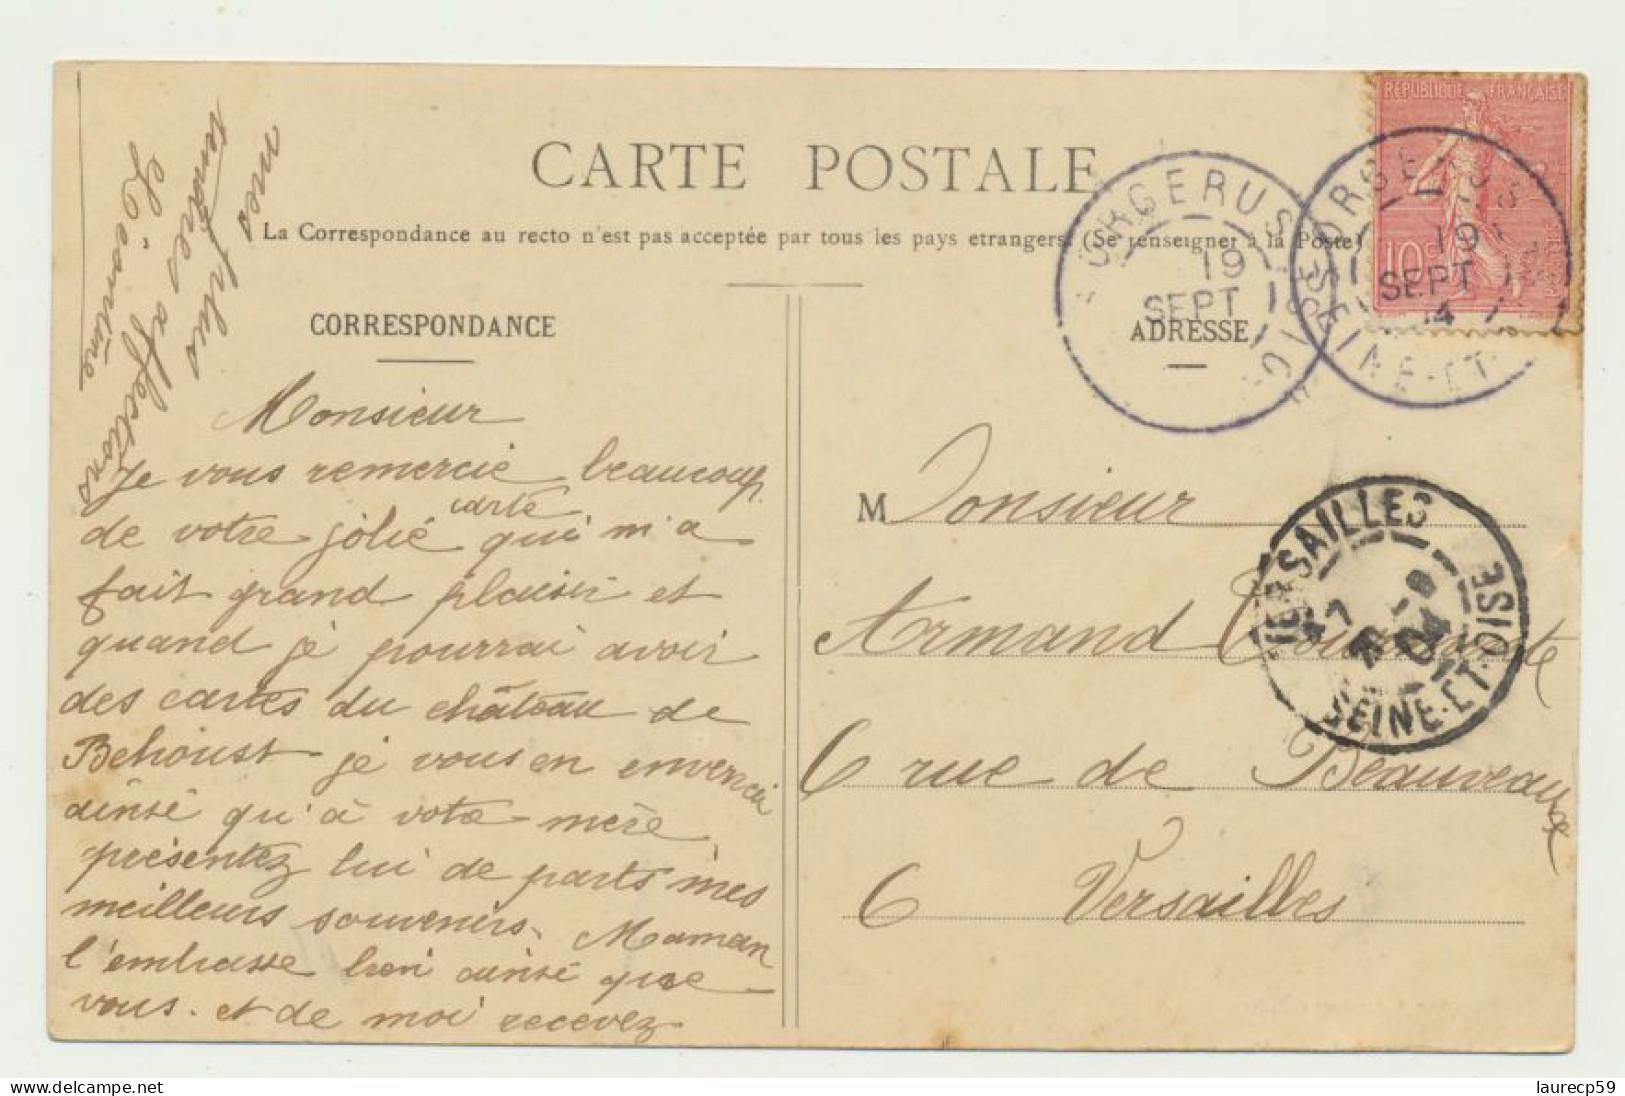 CARTE POSTALE
La Correspondance au recto n'est pas acceptée par tous les pays etrangers (Se renseigner à la Poste)
CORRESPONDANCE
ADRESSE
Monsieur
Je vous remercie beaucoup
de votre jolie carte qui m'a
fait grand plaisir et
quand je pourrai avoir
des cartes du château de
Behoust je vous en enverrai
ainsi qu'à votre mère
présentez lui de parts mes
meilleurs souvenirs. Maman
l'embrasse bien ainsi que
vous. et de moi recevez
mes plus
tendres affections
Léontine
Monsieur
Armand
6 rue de Beauveau
6 Versailles
REPUBLIQUE FRANÇAISE
10c
ORGERUS
19
SEPT
SEINE-ET-OISE
ORGERUS
19
SEPT
04
SEINE-ET-
VERSAILLES
04
SEINE-ET-OISE
www.delcampe.net
laurecp59